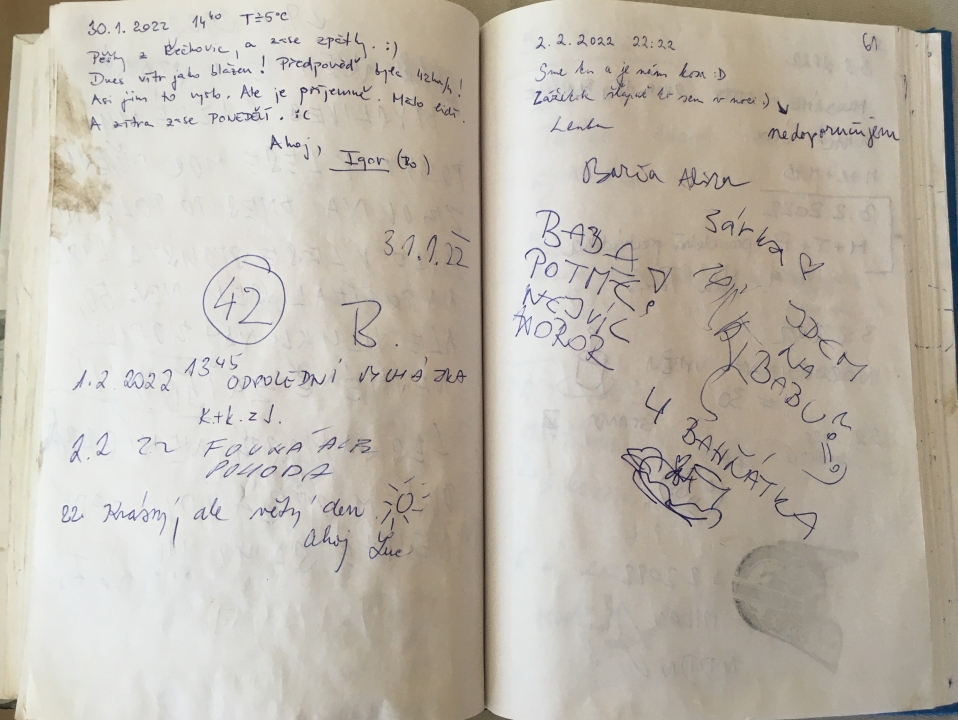 30.1.2022 14⁴⁰ T≐5°C
Pěšky z Řečkovic, a zase zpátky. :)
Dnes vítr jako blázen! Předpověď byla 42km/h!
Asi jim to vyšlo. Ale je příjemně. Málo lidí.
A zítra zase PONDĚLÍ. :C
Ahoj, Igor (Bo)
31.1.22
42
B.
1.2.2022 13⁴⁵ ODPOLEDNÍ VYCHÁZKA
K+K. z J.
2.2 22 FOUKÁ ALE
POHODA
22. Krásný, ale větrný den
Ahoj Luc
2.2.2022 22:22
61
Sme tu a je nám kosa :D
Zážitek šlapat to sem v noci :)
nedoporučujem
Lenka
Barča
Šárka ♡
BABA
POTMĚ,
NEJVÍC
HOROR
JDEM
NA
BABU
4
BAHŇÁTKA